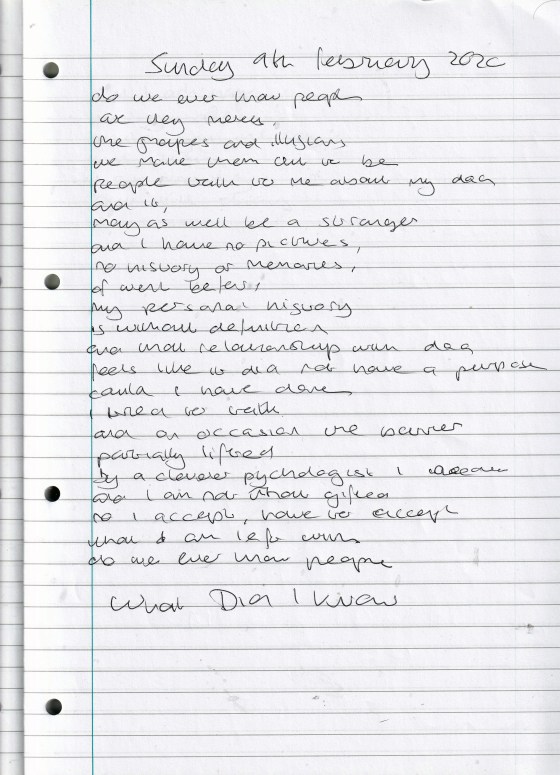 Sunday 9th February 202
do we ever know people
are they merely
the shapes and illusions
we make them out to be
people talk to me about my dad
and it,
may as well be a stranger
and I have no pictures,
no history or memories,
of went before,
my personal history
is without definition
and that relationship with dad
feels like it did not have a purpose
could I have done
I tried to talk
and on occasion the barrier
partially lifted
by a clever pychologist I
and I am not that gifted
so I accept, have to accept
what I am left with
do we ever know people
What Did I know